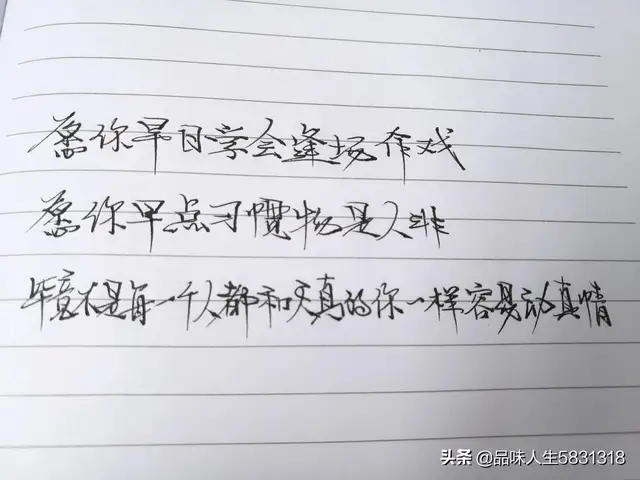 愿你早日学会逢场作戏
愿你早点习惯物是人非
毕竟不是每一个人都和天真的你一样容易动真情
头条 @品味人生5831318